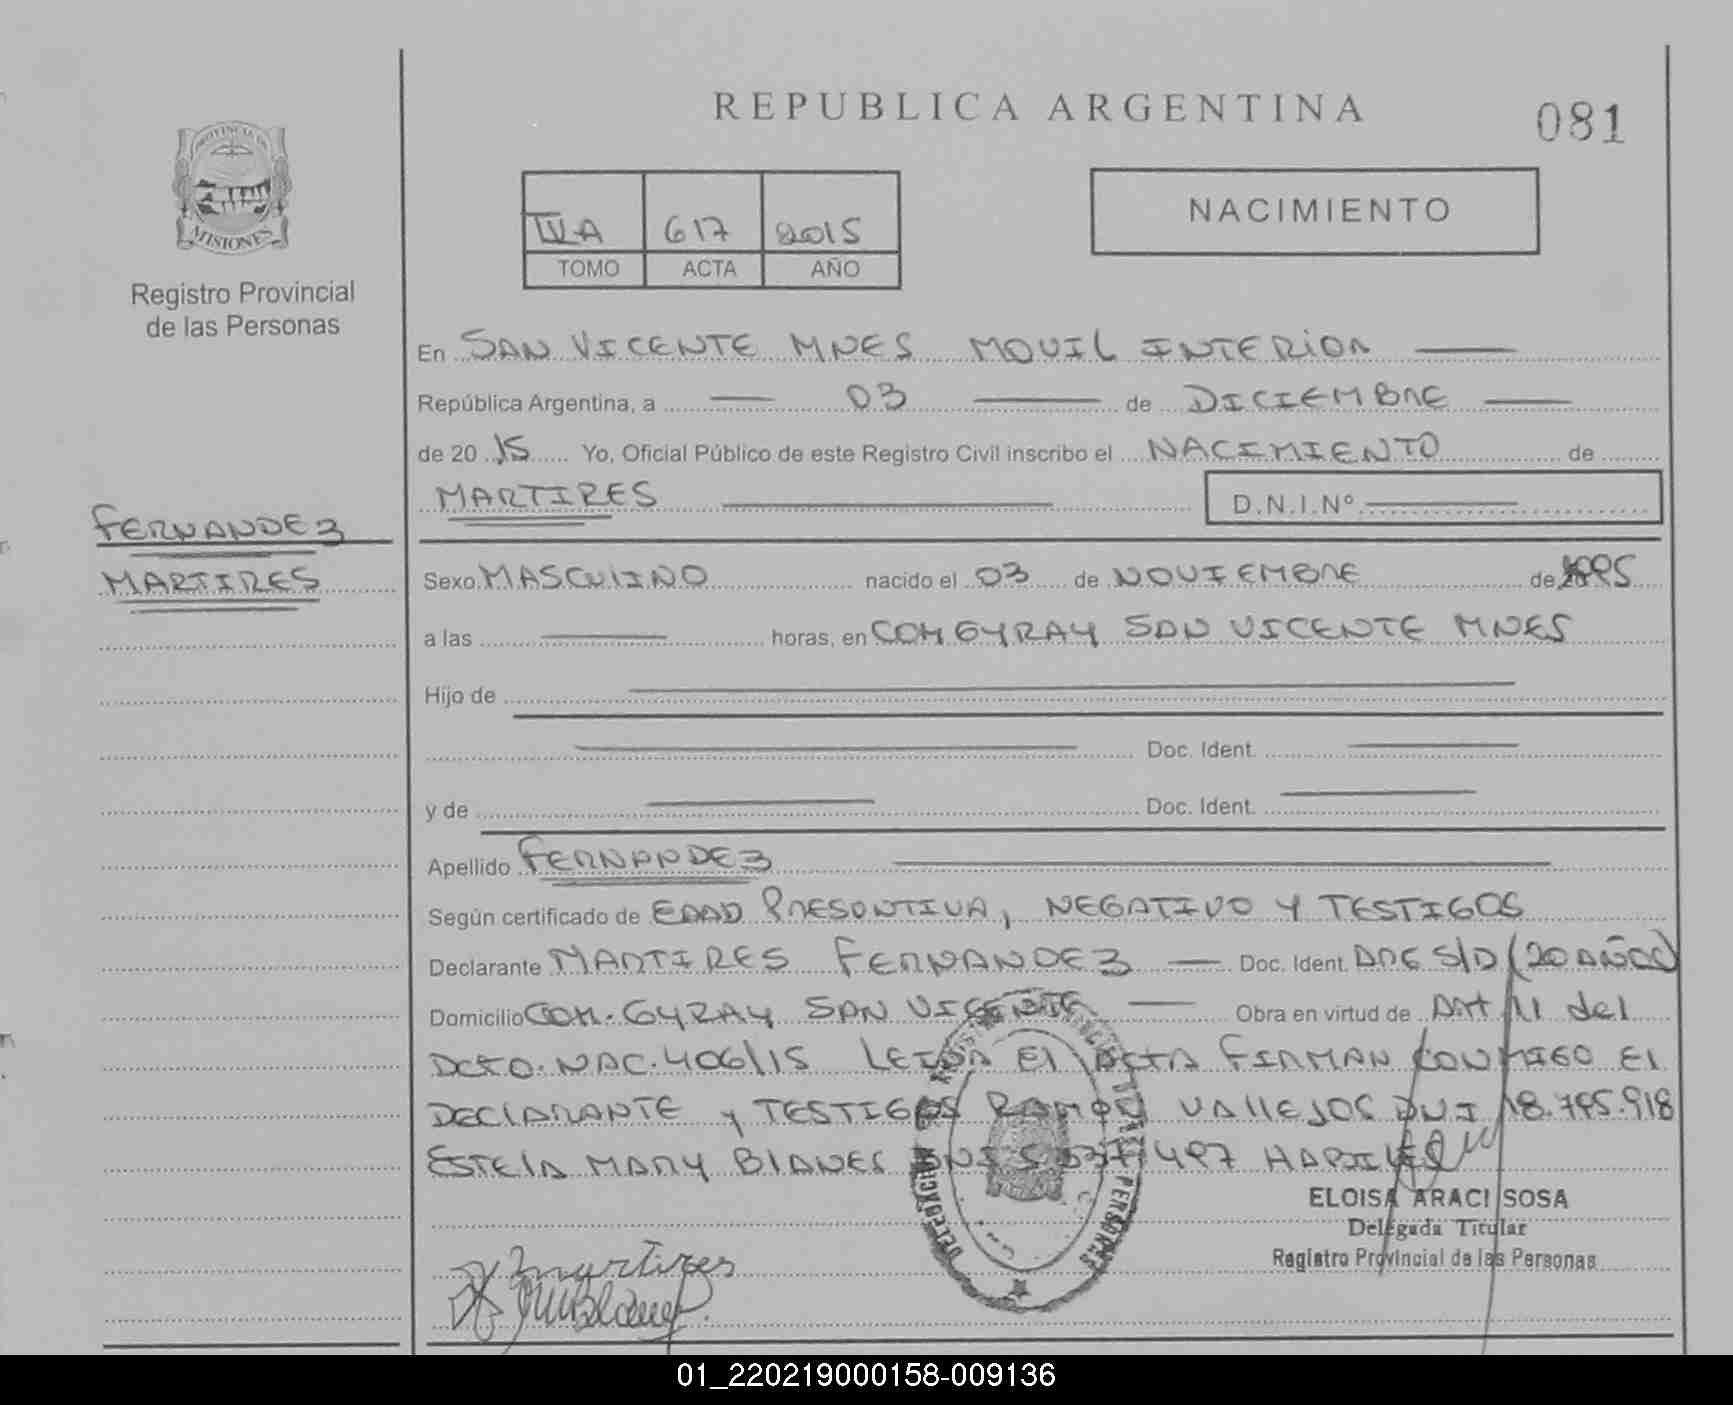 REPUBLICA ARGENTINA
081
PROVINCIA DE
MISIONES
Registro Provincial
de las Personas
IVA 617 2015
TOMO ACTA AÑO
NACIMIENTO
En SAN VICENTE MNES MOVIL INTERIOR
República Argentina, a 03 de DICIEMBRE
de 20 15 Yo, Oficial Público de este Registro Civil inscribo el NACIMIENTO de
MARTIRES D.N.I.Nº
FERNANDEZ
MARTIRES
Sexo MASCULINO nacido el 03 de NOVIEMBRE de 1995
a las horas, en COM GYRAY SAN VICENTE MNES
Hijo de
Doc. Ident.
y de Doc. Ident.
Apellido FERNANDEZ
Según certificado de EDAD PRESONTIVA, NEGATIVO Y TESTIGOS
Declarante MARTIRES FERNANDEZ Doc. Ident. DRE S/D (20 AÑOS)
Domicilio COM. GYRAY SAN VICENTE Obra en virtud de Art 11 del
DCTO. NAC. 406/15 LEIDA El ACTA FIRMAN CONMIGO El
DECLARANTE y TESTIGOS RAMON VALLEJOS DNI 18.795.918
ESTELA MARY BLANES DNI 497
DELEGACION
ELOISA ARACI SOSA
Delegada Titular
Registro Provincial de las Personas
Martires
01_220219000158-009136